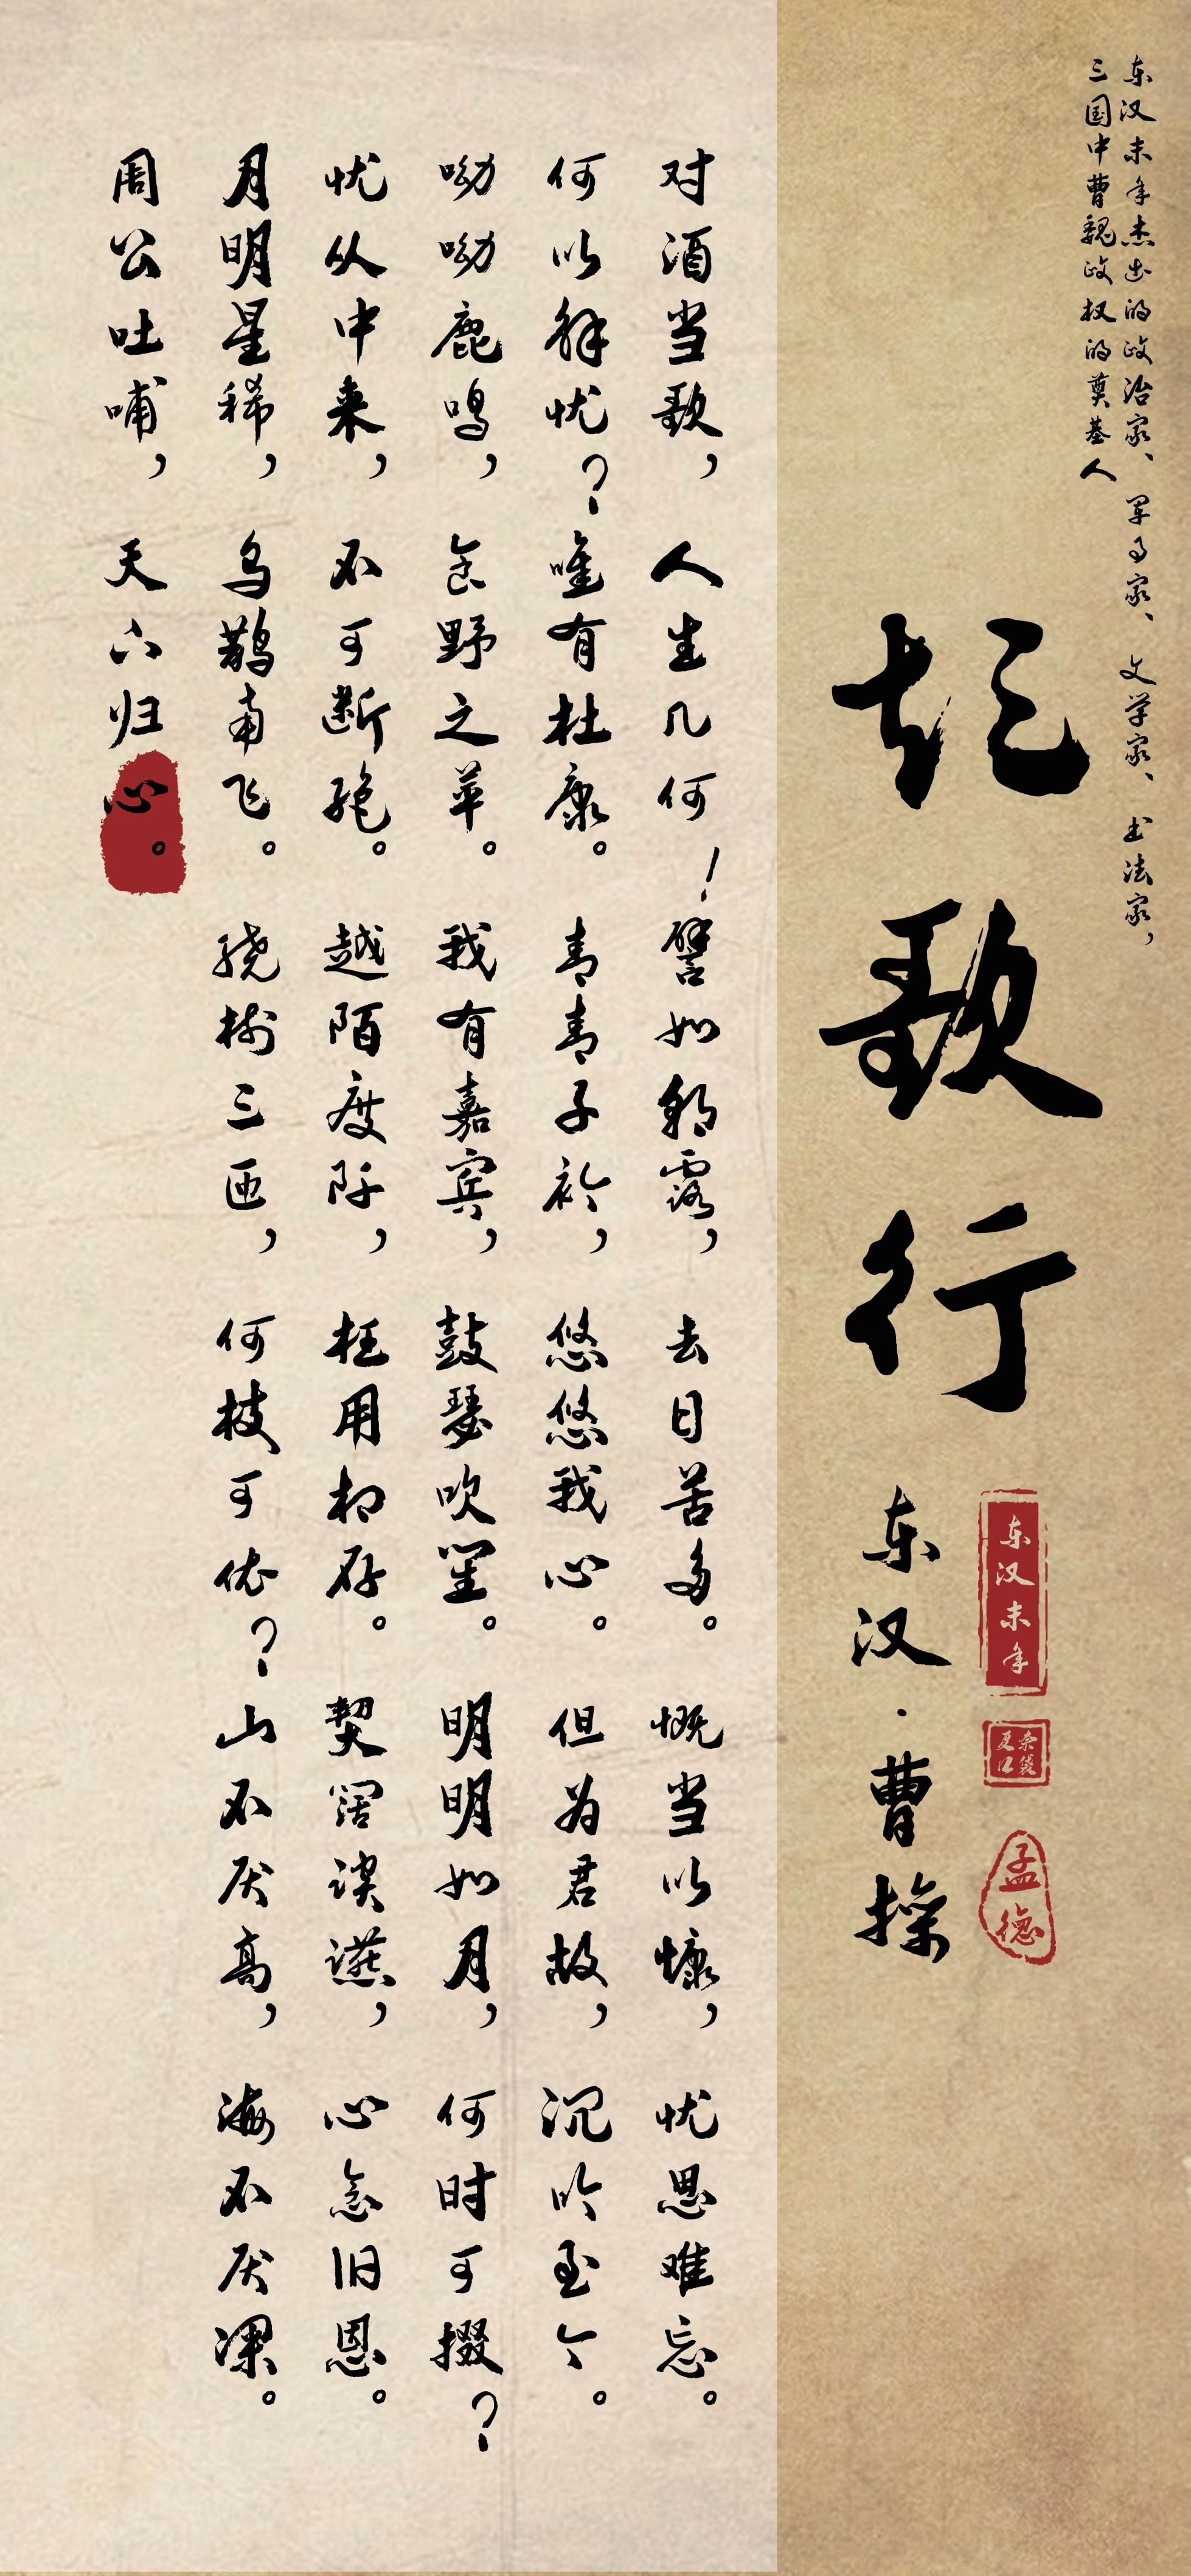 东汉末年杰出的政治家、军事家、文学家、书法家，
三国中曹魏政权的奠基人
短歌行
东汉末年
孟德
东汉·曹操
对酒当歌，人生几何！譬如朝露，去日苦多。慨当以慷，忧思难忘。
何以解忧？唯有杜康。青青子衿，悠悠我心。但为君故，沉吟至今。
呦呦鹿鸣，食野之苹。我有嘉宾，鼓瑟吹笙。明明如月，何时可掇？
忧从中来，不可断绝。越陌度阡，枉用相存。契阔谈䜩，心念旧恩。
月明星稀，乌鹊南飞。绕树三匝，何枝可依？山不厌高，海不厌深。
周公吐哺，天下归心。